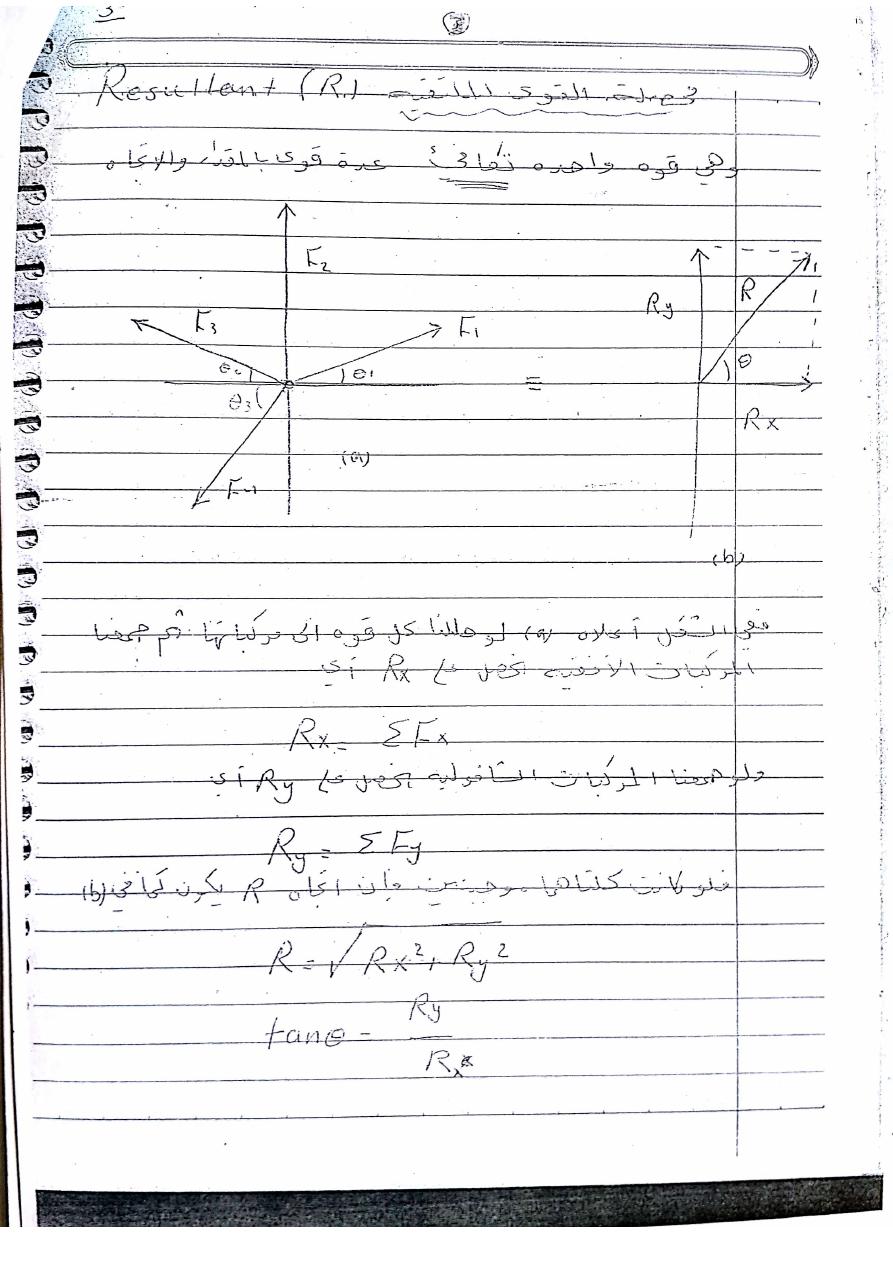 3
Resultant (R) محصلة القوى الملتقيه
وهي قوه واحده تكافئ عدة قوى بالمقدار والاتجاه
F2
F3
F1
Ry
R
θ2
θ1
θ
θ3
≡
Rx
F4
(a)
(b)
ففي الشكل أعلاه (a) لو حللنا كل قوه الى مركباتها ثم جمعنا
المركبات الأفقيه نحصل على Rx أي
Rx = ΣFx
ولو جمعنا المركبات الشاقوليه نحصل على Ry أي
Ry = ΣFy
فلو كانت كلتاهما موجبتين فإن اتجاه R يكون كما في (b)
R = √Rx² + Ry²
tanθ = Ry
Rx